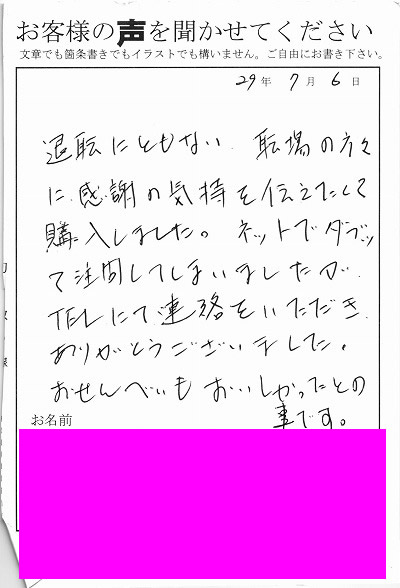 お客様の声を聞かせてください
文章でも箇条書きでもイラストでも構いません。ご自由にお書き下さい。
29年 7月 6日
退転にともない 転場の方々
に感謝の気持を伝えたくて
購入しましました。ネットでダブッ
て注問してしまいましたが、
TELにて連絡をいただき、
ありがとうございました。
おせんべいもおいしかったとの
事です。
お名前